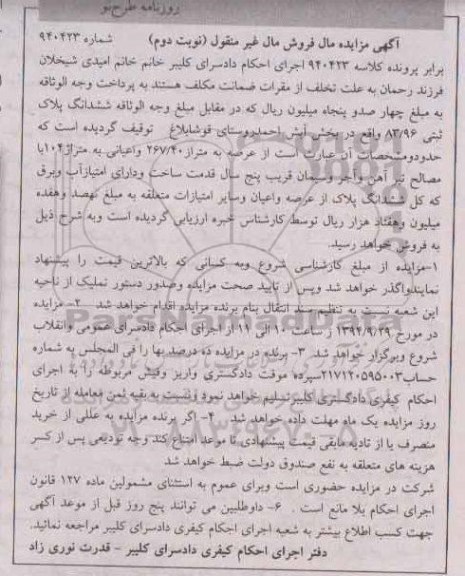 روزنامه طرح نو
آگهی مزایده مال فروش مال غیر منقول (نوبت دوم) شماره ۹۴۰۴۲۳
برابر پرونده کلاسه ۹۴۰۴۲۳ اجرای احکام دادسرای کلیبر خانم خانم امیدی شیخلان
فرزند رحمان به علت تخلف از مقررات ضمانت مکلف هستند به پرداخت وجه الوثاقه
به مبلغ چهار صدو پنجاه میلیون ریال که در مقابل مبلغ وجه الوثاقه ششدانگ پلاک
ثبتی ۸۳/۹۶ واقع در بخش آبش احمدروستای قوشابلاغ توقیف گردیده است که
حدودومشخصات آن عبارت است از عرصه به متراژ ۲۶۷/۴۰ واعیانی به متراژ ۱۰۴با
مصالح تیر آهن وآجر وسیمان قریب پنج سال قدمت ساخت ودارای امتیازآب وبرق
که کل ششدانگ پلاک از عرصه واعیان وسایر امتیازات متعلقه به مبلغ نهصد وهفده
میلیون وهفتاد هزار ریال توسط کارشناس خبره ارزیابی گردیده است وبه شرح ذیل
به فروش خواهد رسید.
۱-مزایده از مبلغ کارشناسی شروع وبه کسانی که بالاترین قیمت را پیشنهاد
نمایندواگذر خواهد شد وپس از تایید صحت مزایده وصدور دستور تملیک از ناحیه
این شعبه نسبت به تنظیم سند انتقال بنام برنده مزایده اقدام خواهد شد ۲- مزایده
در مورخ ۱۳۹۴/۹/۲۹ ساعت ۱۰ الی ۱۱ از اجرای احکام دادسرای عمومی وانقلاب
شروع وبرگزار خواهد شد ۳- برنده در مزایده ده درصد بها را فی المجلس به شماره
حساب۲۱۷۱۲۰۵۹۵۰۰۳سپرده موقت دادگستری واریز وفیش مربوطه را به اجرای
احکام کیفری دادگستری کلیبرتسلیم خواهد نمود ونسبت به بقیه ثمن معامله از تاریخ
روز مزایده یک ماه مهلت داده خواهد شد ۴- اگر برنده مزایده به عللی از خرید
منصرف یا از تادیه مابقی قیمت پیشنهادی تا موعد امتناع کند وجه تودیعی پس از کسر
هزینه های متعلقه به نفع صندوق دولت ضبط خواهد شد
شرکت در مزایده حضوری است وبرای عموم به استثنای مشمولین ماده ۱۲۷ قانون
اجرای احکام بلا مانع است . ۶- داوطلبین می توانند پنج روز قبل از موعد آگهی
جهت کسب اطلاع بیشتر به شعبه اجرای احکام کیفری دادسرای کلیبر مراجعه نمائید.
دفتر اجرای احکام کیفری دادسرای کلیبر - قدرت نوری زاد
ParsNamadData